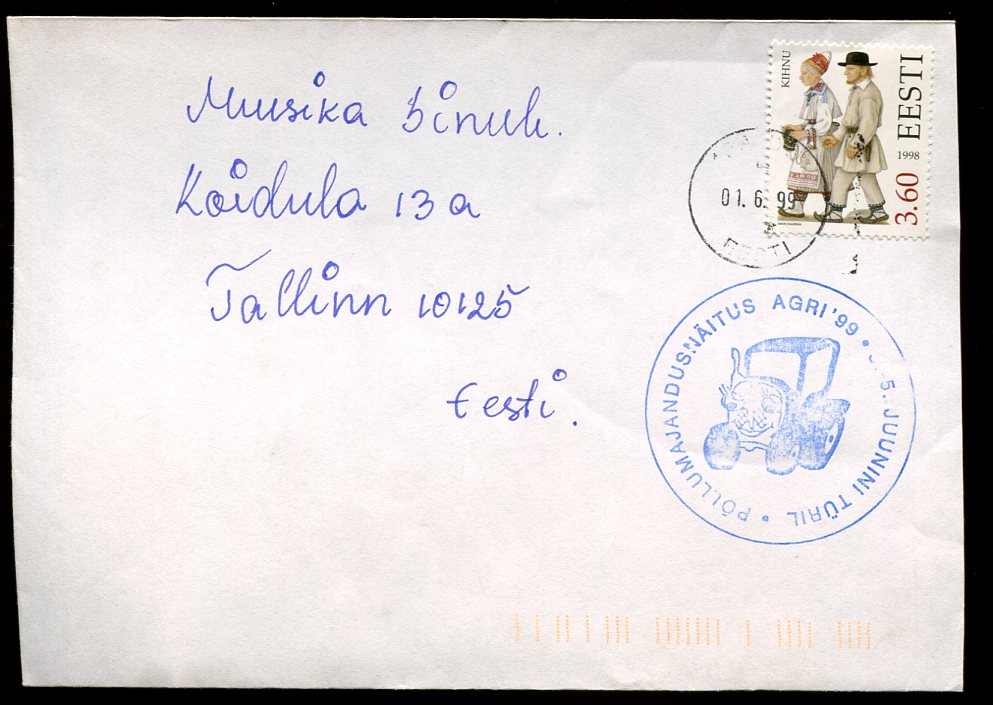 Muusika Sinule.
Koidula 13 a
Tallinn 10125
Eesti.
KIHNU
EESTI
1998
3.60
01. 6. 99
EESTI
PÕLLUMAJANDUSNÄITUS AGRI '99 • 5. JUUNINI TÜRIL •